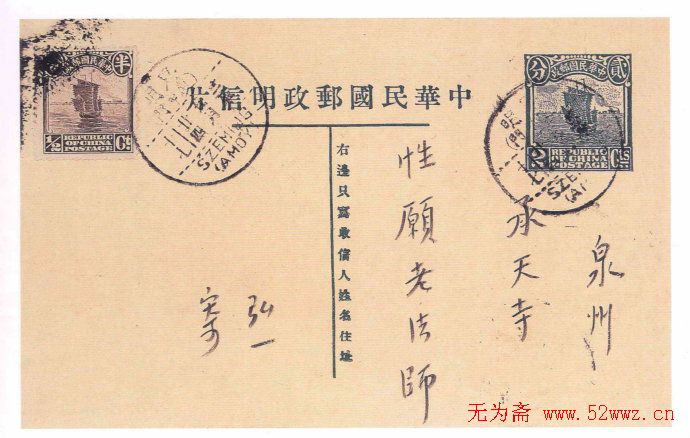 中華民國郵政明信片
右邊只寫收信人姓名住址
泉州
承天寺
性願老法師
弘一
寄
中華民國郵政
貳
分
2
CTS
REPUBLIC
OF CHINA
POSTAGE
中華民國郵政
半
分
1/2
Ct.
REPUBLIC
OF CHINA
POSTAGE
SZEMING
(AMOY)
SZEMING
无为斋 www.52wwz.cn